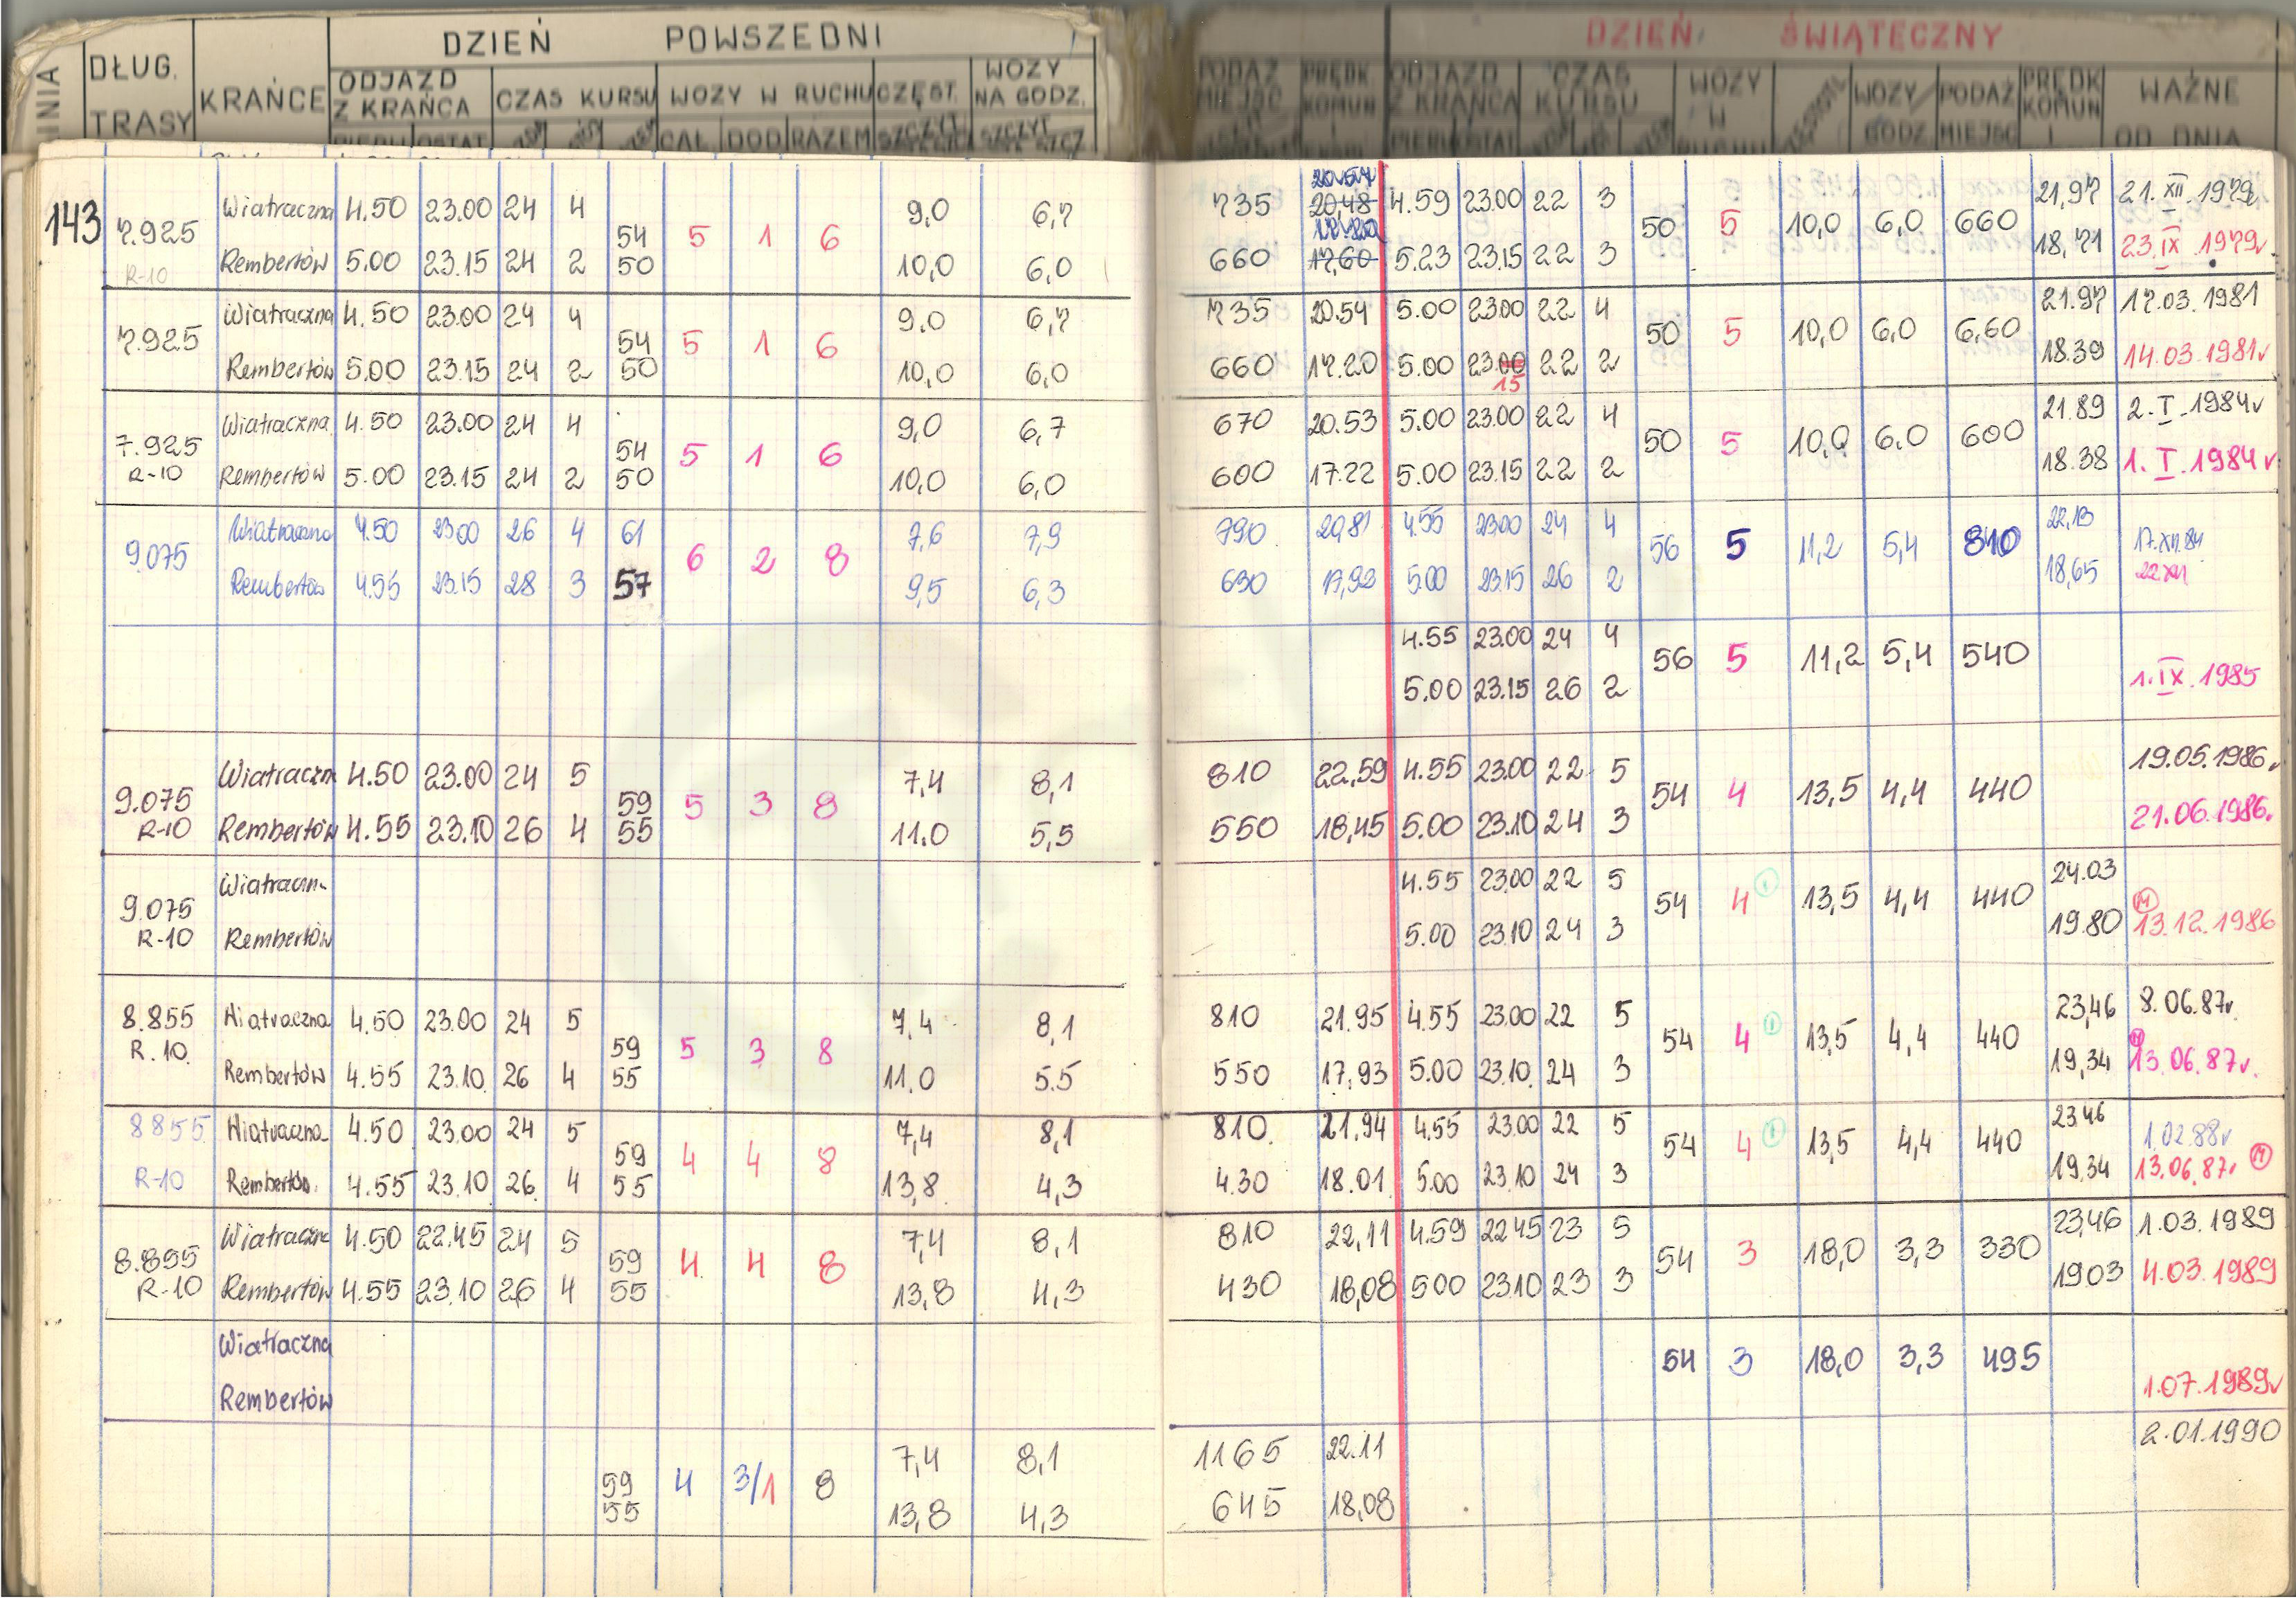 DZIEŃ POWSZEDNI DZIEŃ ŚWIĄTECZNY
DŁUG. TRASY KRAŃCE ODJAZD Z KRAŃCA CZAS KURSU WOZY W RUCHU CZĘST. WOZY NA GODZ. PODAŻ MIEJSC PRĘDK KOMUN ODJAZD Z KRAŃCA CZAS KURSU WOZY W RUCHU WOZY GODZ. PODAŻ MIEJSC PRĘDK KOMUN WAŻNE OD DNIA
CAŁ DOD RAZEM SZCZYT SZCZYT
143 7.925 Wiatraczna 4.50 23.00 24 4 54 5 1 6 9,0 6,7 735 20,48 4.59 23.00 22 3 50 5 10,0 6,0 660 21,97 21.XII.1979
R-10 Rembertów 5.00 23.15 24 2 50 10,0 6,0 660 17,60 5.23 23.15 22 3 18,71 23.IX.1979r
7.925 Wiatraczna 4.50 23.00 24 4 54 5 1 6 9.0 6,7 735 20.54 5.00 23.00 22 4 50 5 10,0 6,0 6,60 21.97 17.03.1981
Rembertów 5.00 23.15 24 2 50 10,0 6,0 660 17.20 5.00 23.00 22 2 18.39 14.03.1981r
15
7.925 Wiatraczna 4.50 23.00 24 4 54 5 1 6 9,0 6,7 670 20.53 5.00 23.00 22 4 50 5 10,0 6,0 600 21.89 2.I.1984r
R-10 Rembertów 5.00 23.15 24 2 50 10,0 6,0 600 17.22 5.00 23.15 22 2 18.38 1.I.1984r
9.075 Wiatraczna 4.50 23.00 26 4 61 6 2 8 7,6 7,9 790 20,81 4.55 23.00 24 4 56 5 11,2 5,4 810 22,13 17.XII.84
Rembertów 4.55 23.15 28 3 57 9,5 6,3 630 17,92 5.00 23.15 26 2 18,65 22.XII
4.55 23.00 24 4 56 5 11,2 5,4 540
5.00 23.15 26 2 1.IX.1985
9.075 Wiatraczn 4.50 23.00 24 5 59 5 3 8 7,4 8,1 810 22,59 4.55 23.00 22 5 54 4 13,5 4,4 440 19.05.1986
R-10 Rembertów 4.55 23.10 26 4 55 11.0 5,5 550 18,45 5.00 23.10 24 3 21.06.1986.
9.075 Wiatraczn. 4.55 23.00 22 5 54 4 13,5 4,4 440 24.03
R-10 Rembertów 5.00 23.10 24 3 19.80 M 13.12.1986
8.855 Wiatraczna 4.50 23.00 24 5 59 5 3 8 7,4 8,1 810 21.95 4.55 23.00 22 5 54 4 13,5 4,4 440 23,46 8.06.87r
R.10. Rembertów 4.55 23.10. 26 4 55 11.0 5.5 550 17.93 5.00 23.10. 24 3 19,34 M 13.06.87r.
8855 Wiatraczna 4.50 23.00 24 5 59 4 4 8 7,4 8,1 810. 21.94 4.55 23.00 22 5 54 4 13,5 4,4 440 23.46 1.02.88r
R-10 Rembertów. 4.55 23.10 26. 4 55 13,8 4,3 4.30 18.01 5.00 23.10 24 3 19.34 13.06.87r M
8.855 Wiatraczna 4.50 22.45 24 5 59 4 4 8 7,4 8,1 810 22,11 4.59 22 45 23 5 54 3 18,0 3,3 330 23,46 1.03.1989
R-10 Rembertów 4.55 23.10 26 4 55 13,8 4,3 430 18,08 5 00 23.10 23 3 19 03 4.03.1989
Wiatraczna 54 3 18,0 3,3 495
Rembertów 1.07.1989r
59 4 3/1 8 7,4 8,1 1165 22.11 2.01.1990
55 13,8 4,3 645 18,08